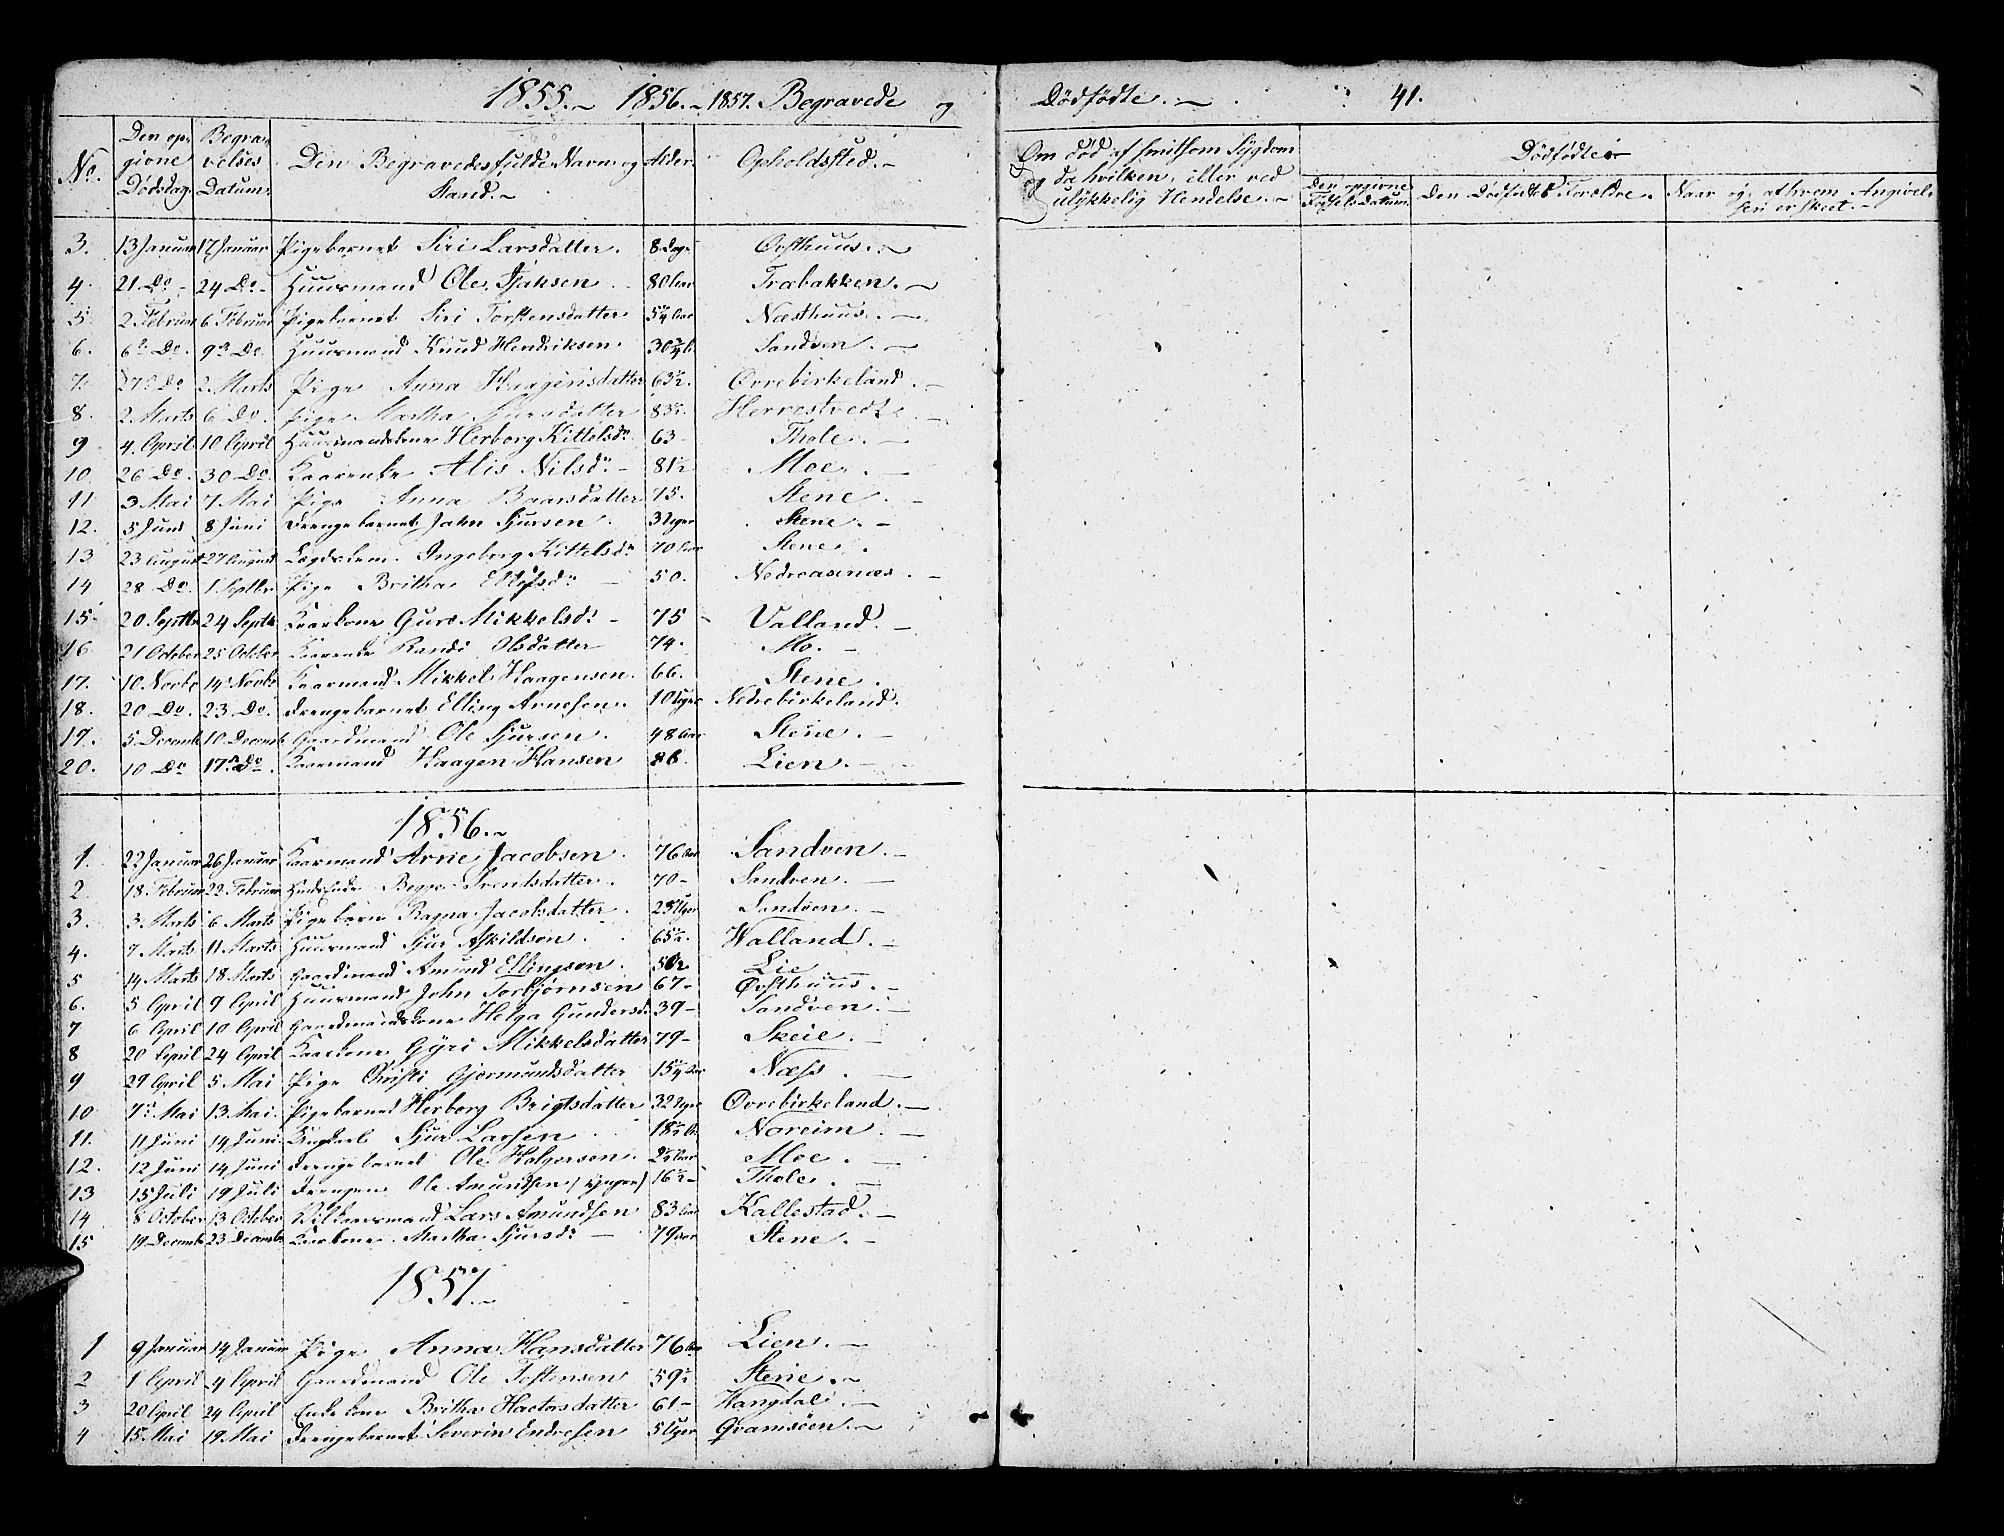 1855.~ 1856.~ 1857. Begravede og Dødfødte.~ 41.
No. Den opgivne Dødsdag. Begravelses Datum. Den Begravedes fulde Navn og Stand.~ Alder. Opholdsfted.~ Om død af smitsom Sygdom og da hvilken, eller ved ulykkelig Hendelse.~ Dødfødte Den opgivne Fødsels Datum. Den Dødfødtes Forældre. Naar og at hvem Angivelsen er skeet.~
3. 13 Januar 17 Januar Pigebarnet Siri Larsdatter. 8 Dage Øvsthuus.~
4. 21 Do 24 Do Huusmand Ole Isaksen 80 Aar Træbakken.~
5. 2 Februar 6 Februar Pigebarnet Siri Torstensdatter 5¼ Aar Næsthuus.~
6. 6 Do 9 Do Huusmand Knud Hendriksen. Sandven.~
7. Do 2 Marts Pige Anna Haagensdatter 63½. Øvrebirkeland.~
8. 2 Marts 6 Do Pige Martha Sjursdatter 83½. Herrestvedt.~
9 4. April 10 April Huusmandskone Herborg Kittelsdr 63 Thole.~
10. 26 Do. 30 Do. Kaarenke Alis Nilsdr 81½ Moe.~
11 3 Mai 7 Mai Pige Anna Baarsdatter 75. Stene.~
12. 5 Juni 8 Juni Drengebarnet John Sjursen. 3 Uger Skeie.~
13. 23 August 27 August Lægdslem. Ingeborg Kittelsdr 70 Aar Stene.
14 28 Do. 1 Septbr Pige Britha 50. Nedreaasnæs.~
15. 20 Septbr 24 Septbr Kaarkone Guro Mikkelsdr 75 Valland.~
16. 21 October 25 October Kaarenke Randi Olsdatter 74. Mo.~
17. 10 Novbr 14 Novbr Kaarmand Mikkel Haagensen. 66. Stene.
18. 20 Do. 23 Do. Drengebarnet Elling Arnesen. 10 Uger Nedrebirkeland.
19. 5 Decemb 10 Decemb Gaardmand Ole Sjursen. 48 Aar Steine.~
20. 10 Do 17 Do. Kaarmand Haagen Hansen 86. Lien.~
1856.~
1. 22 Januar 26 Januar Kaarmand Arne Jacobsen. 76 Aar Sandven.~
2. 18. Februar 22 Februar Begge Svendsdatter. 70 Sandven.~
3. 3 Marts 6 Marts Pigebarn Ragna Jacobsdatter. Uger Sandven.~
4. 7 Marts 11 Marts Huusmand Sjur Askildsen. 65½. Walland.~
5 14 Marts 18 Marts Gaardmand Amund Ellingsen. Lie
6. 5 April 9 April Huusmand John Torbjørnsen 67 Øvsthuus.~
7 6 April 10 April Gaardmandskone Helga Gundersdr 39 Sandven.~
8 20 April 24 April Kaarkone Gyri Mikkelsdatter 79 Skeie.~
9 29 April 5. Mai Pige Christi Gjermundsdatter 15¼ Aar Næss.~
10 7 Mai 13. Mai. Pigebarnet Herborg Brigtsdatter 32 Uger Øvrebirkeland.~
11. 11 Juni 14 Juni. Ungkarl Sjur Larsen 18½ Noreim.~
12. 12 Juni 14 Juni Drengebarnet Ole Holgersen. Aar Moe.~
13 15 Juli 19 Juli Drengen Ole Amundsen 16½ Thole.~
14 8 October 13 October Lars Amundsen 83 Aar Kallestad.~
15 19 Decemb 23 Decemb Kaarkone Martha Sjursdr 79 Aar Stene.~
1857.~
1 9 Januar 14 Januar Pige Anna Hansdatter 76 Aar Lien.~
2 1 April 4 April Gaardmand Ole Tostensen 59½ Steine.~
3 20 April 24 April Enkekone Britha Hactorsdatter 61 Vangdal.~
4 15 Mai 19 Mai Drengebarnet Severin Endresen 5 Uger Qvamsøen.~